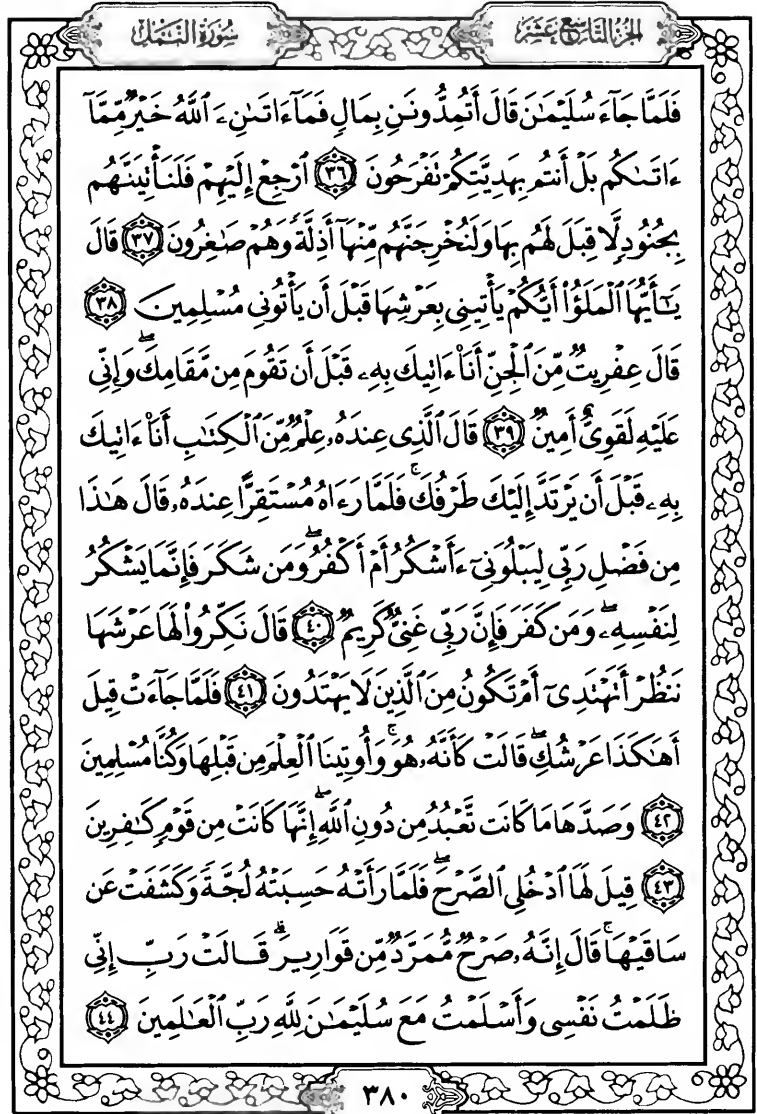 الجزء التاسع عشر
سورة النمل
فَلَمَّا جَآءَ سُلَيْمَـٰنَ قَالَ أَتُمِدُّونَنِ بِمَالٍ فَمَآ ءَاتَىٰنِۦَ ٱللَّهُ خَيْرٌ مِّمَّآ
ءَاتَىٰكُم بَلْ أَنتُم بِهَدِيَّتِكُمْ تَفْرَحُونَ ٣٦ ٱرْجِعْ إِلَيْهِمْ فَلَنَأْتِيَنَّهُم
بِجُنُودٍ لَّا قِبَلَ لَهُم بِهَا وَلَنُخْرِجَنَّهُم مِّنْهَآ أَذِلَّةً وَهُمْ صَـٰغِرُونَ ٣٧ قَالَ
يَـٰٓأَيُّهَا ٱلْمَلَؤُا۟ أَيُّكُمْ يَأْتِينِى بِعَرْشِهَا قَبْلَ أَن يَأْتُونِى مُسْلِمِينَ ٣٨
قَالَ عِفْرِيتٌ مِّنَ ٱلْجِنِّ أَنَا۠ ءَاتِيكَ بِهِۦ قَبْلَ أَن تَقُومَ مِن مَّقَامِكَ ۖ وَإِنِّى
عَلَيْهِ لَقَوِىٌّ أَمِينٌ ٣٩ قَالَ ٱلَّذِى عِندَهُۥ عِلْمٌ مِّنَ ٱلْكِتَـٰبِ أَنَا۠ ءَاتِيكَ
بِهِۦ قَبْلَ أَن يَرْتَدَّ إِلَيْكَ طَرْفُكَ ۚ فَلَمَّا رَءَاهُ مُسْتَقِرًّا عِندَهُۥ قَالَ هَـٰذَا
مِن فَضْلِ رَبِّى لِيَبْلُوَنِىٓ ءَأَشْكُرُ أَمْ أَكْفُرُ ۖ وَمَن شَكَرَ فَإِنَّمَا يَشْكُرُ
لِنَفْسِهِۦ ۖ وَمَن كَفَرَ فَإِنَّ رَبِّى غَنِىٌّ كَرِيمٌ ٤٠ قَالَ نَكِّرُوا۟ لَهَا عَرْشَهَا
نَنظُرْ أَتَهْتَدِىٓ أَمْ تَكُونُ مِنَ ٱلَّذِينَ لَا يَهْتَدُونَ ٤١ فَلَمَّا جَآءَتْ قِيلَ
أَهَـٰكَذَا عَرْشُكِ ۖ قَالَتْ كَأَنَّهُۥ هُوَ ۚ وَأُوتِينَا ٱلْعِلْمَ مِن قَبْلِهَا وَكُنَّا مُسْلِمِينَ
٤٢ وَصَدَّهَا مَا كَانَت تَّعْبُدُ مِن دُونِ ٱللَّهِ ۖ إِنَّهَا كَانَتْ مِن قَوْمٍ كَـٰفِرِينَ
٤٣ قِيلَ لَهَا ٱدْخُلِى ٱلصَّرْحَ ۖ فَلَمَّا رَأَتْهُ حَسِبَتْهُ لُجَّةً وَكَشَفَتْ عَن
سَاقَيْهَا ۚ قَالَ إِنَّهُۥ صَرْحٌ مُّمَرَّدٌ مِّن قَوَارِيرَ ۗ قَالَتْ رَبِّ إِنِّى
ظَلَمْتُ نَفْسِى وَأَسْلَمْتُ مَعَ سُلَيْمَـٰنَ لِلَّهِ رَبِّ ٱلْعَـٰلَمِينَ ٤٤
٣٨٠